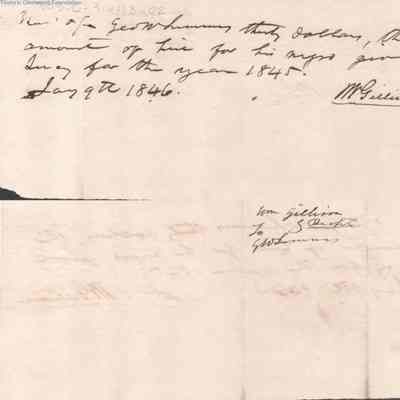 Historic Glenwood Foundation
Rec'd of Geo W Summers thirty dollars, th
amount of hire for his negro
Lucy for the year 1845.
Jany 9th 1846. Wm Gillis
Wm Gillison
To
GW Summers